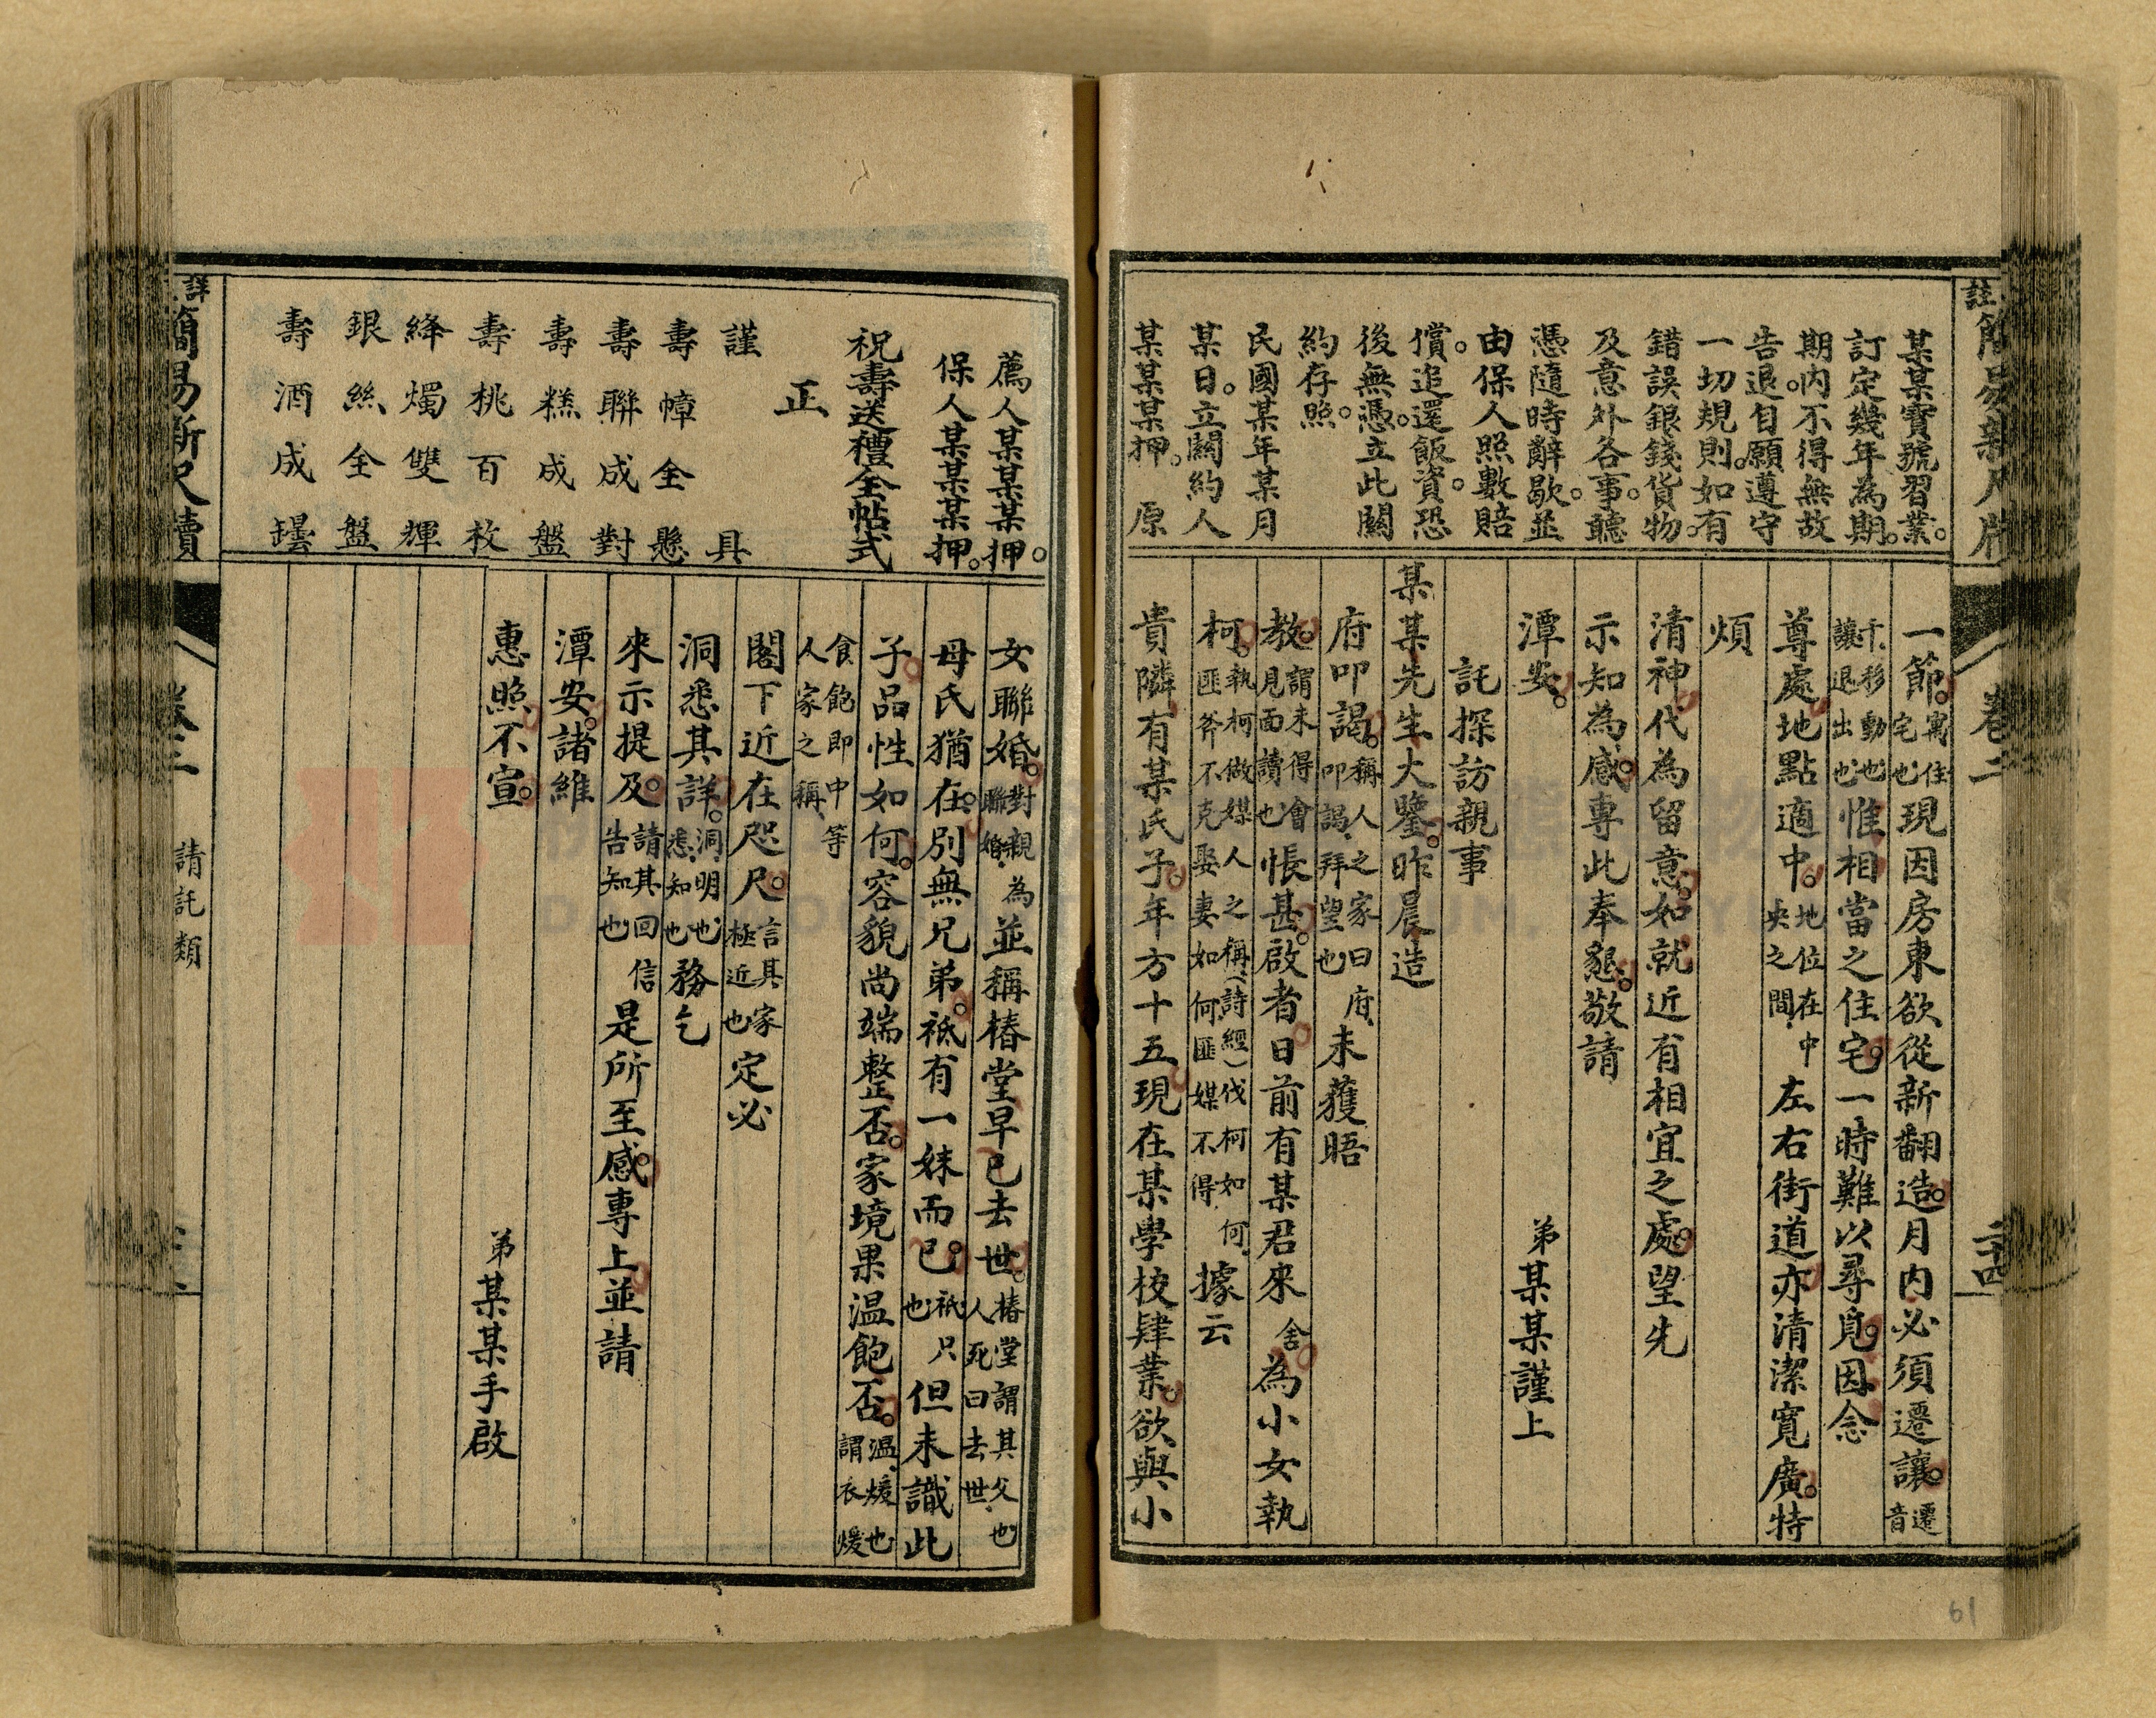 註簡易新尺牘
卷二
二十四
某某寶號習業。
訂定幾年為期。
期內不得無故
告退。自願遵守
一切規則。如有
錯誤銀錢貨物。
及意外各事。聽
憑隨時辭歇。並
由保人照數賠
償。追還飯資。恐
後無憑。立此關
約存照。
民國某年某月
某日。立關約人
某某某押。原
一節。寓住宅也現因房東欲從新翻造。月內必須遷讓。遷音
千移動也讓退出也惟相當之住宅。一時難以尋覓。因念
尊處地點適中。地位在中央之間左右街道亦清潔寬廣。特
煩
清神代為留意。如就近有相宜之處。望先
示知為感。專此奉懇。敬請
潭安。 弟某某謹上
託探訪親事
某某先生大鑒。昨晨造
府叩謁。稱人之家曰府叩謁拜望也未獲晤
教。謂未得會見面讀也悵甚。啟者。日前有某君來舍為小女執
柯。執柯做媒人之稱、(詩經)伐柯如何匪斧不克娶妻如何匪媒不得據云
貴隣有某氏子。年方十五。現在某學校肄業。欲與小
薦人某某某押。
保人某某某押。
祝壽送禮全帖式
正
謹具
壽幛全懸
壽聯成對
壽糕成盤
壽桃百枚
絳燭雙輝
銀絲全盤
壽酒成罎
女聯婚。對親為聯婚並稱椿堂早已去世。椿堂謂其父也人死曰去世
母氏猶在。別無兄弟。祗有一妹而已。祗只也但未識此
子品性如何。容貌尚端整否。家境果温飽否。温煖也謂衣煖
食飽即中等人家之稱
閣下近在咫尺。言其家極近也定必
洞悉其詳。洞明也悉知也務乞
來示提及。請其回信告知也是所至感。專上並請
潭安。諸維
惠照不宣。
弟某某手啟
詳簡易新尺牘
請託類